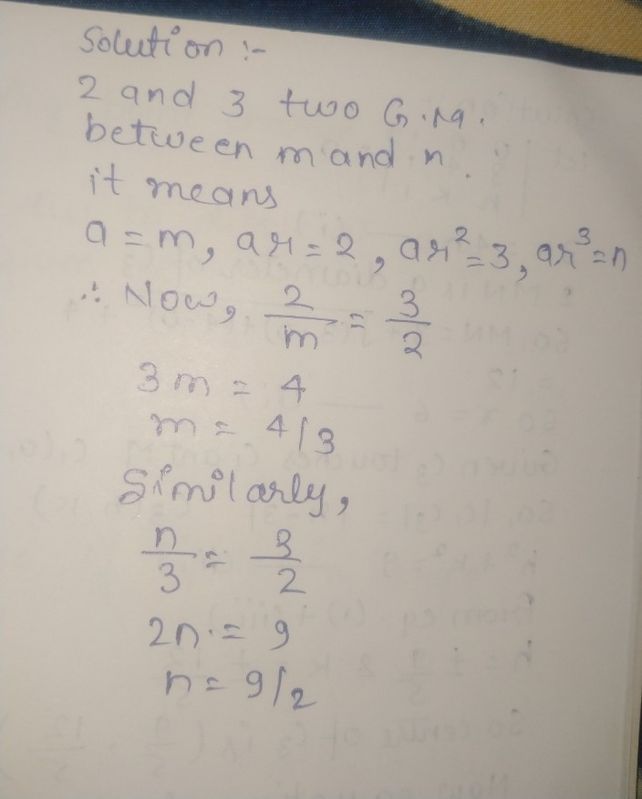 Solution :-
2 and 3 two G.M.
between m and n.
it means
a = m, ar = 2, ar² = 3, ar³ = n
∴ Now, 2/m = 3/2
3m = 4
m = 4/3
Similarly,
n/3 = 3/2
2n = 9
n = 9/2